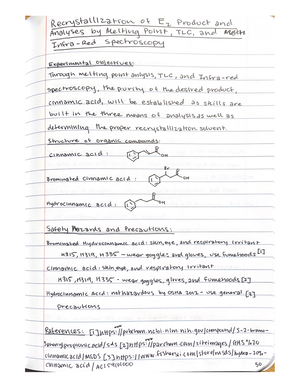 Recrystallization of E2 Product and
Analyses by Melting Point, TLC, and
Infra-Red Spectroscopy
Experimental Objectives:
Through melting point anlysis, TLC, and Infra-red
spectroscopy, the purity of the desired product,
cinnamic acid, will be established as skills are
built in the three means of analysis as well as
determining the proper recrystallization solvent.
Structure of organic compounds:
Cinnamic acid:
OH
Brominated Cinnamic acid:
Br
OH
Hydrocinnamic acid:
OH
Safety Hazards and Precautions:
Brominated Hydrocinnamic acid: skin, eye, and respiratory irritant
H315, H319, H335 - wear goggles and gloves, use fumehoods [1]
Cinnamic acid: skin, eye, and respiratory irritant
H315, H319, H335 - wear goggles, gloves, and fumehoods [2]
Hydrocinnamic Acid: not hazardous by OSHA 2012 - use general [3]
precautions
References: [1] https://pubchem.ncbi.nlm.nih.gov/compound/
[2] https://
cinnamic acid/MSDS [3] https://
cinnamic acid/
50